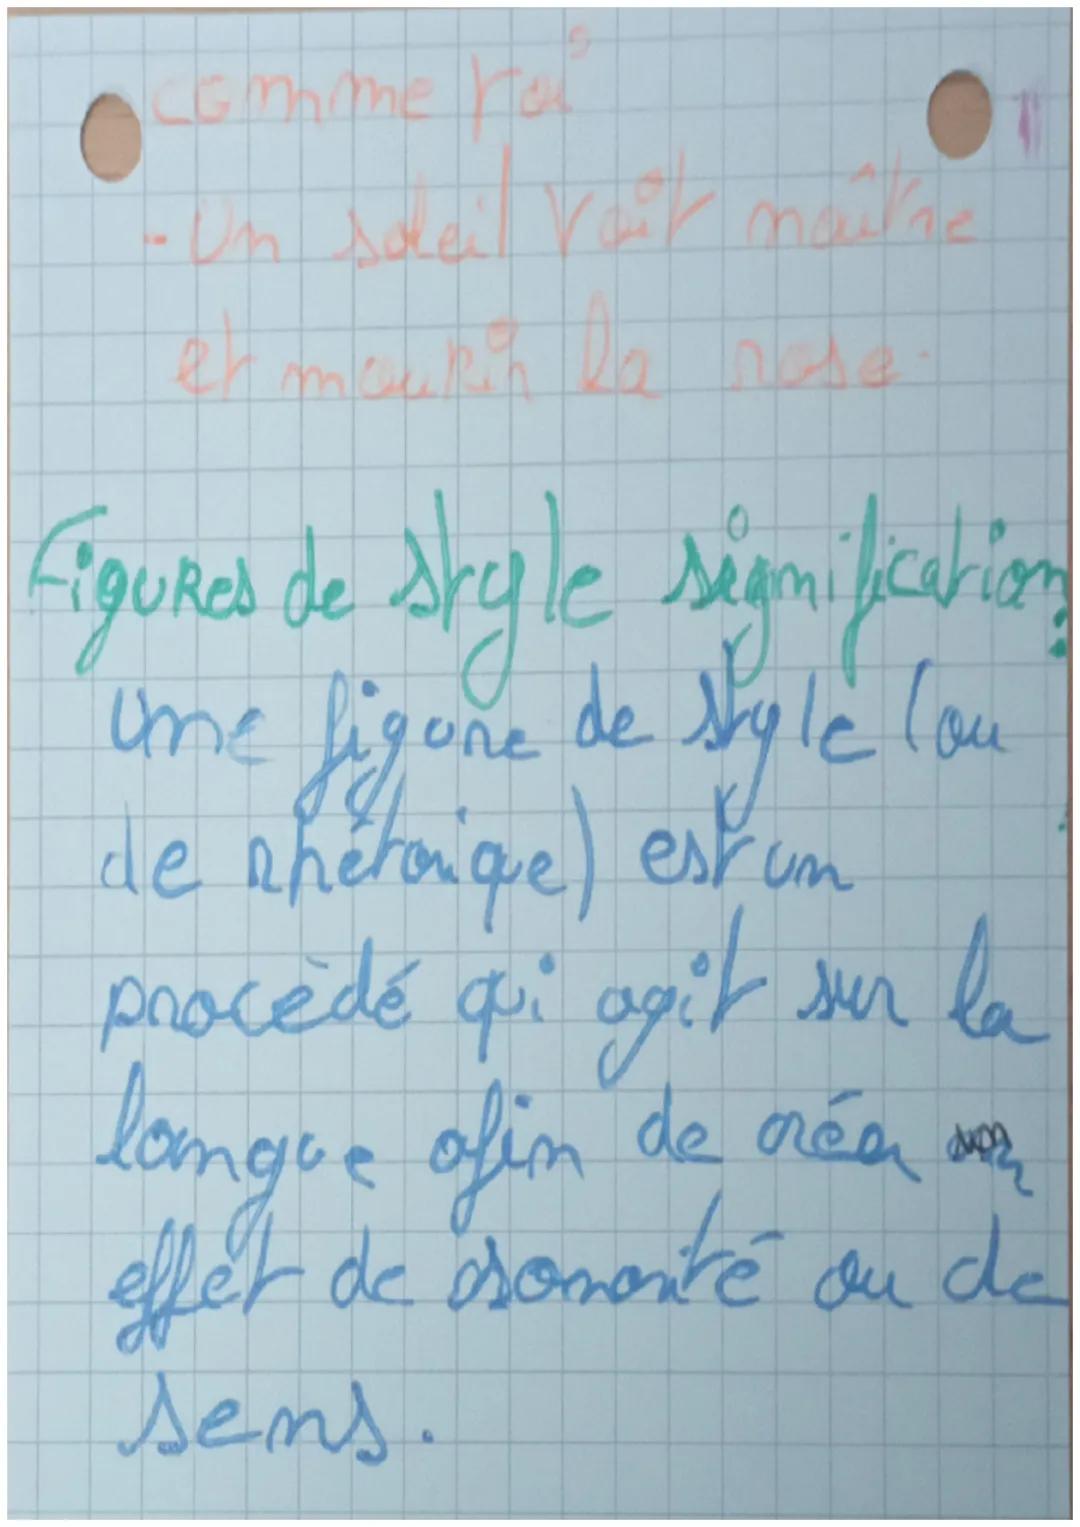 comme toi
- Un soleil voit naître
et mourir la rose.
Figures de style signification :
Une figure de style (ou
de rhétorique) est un
procèdé qui agit sur la
langue afin de créer
effet de sonorité ou de
sens.